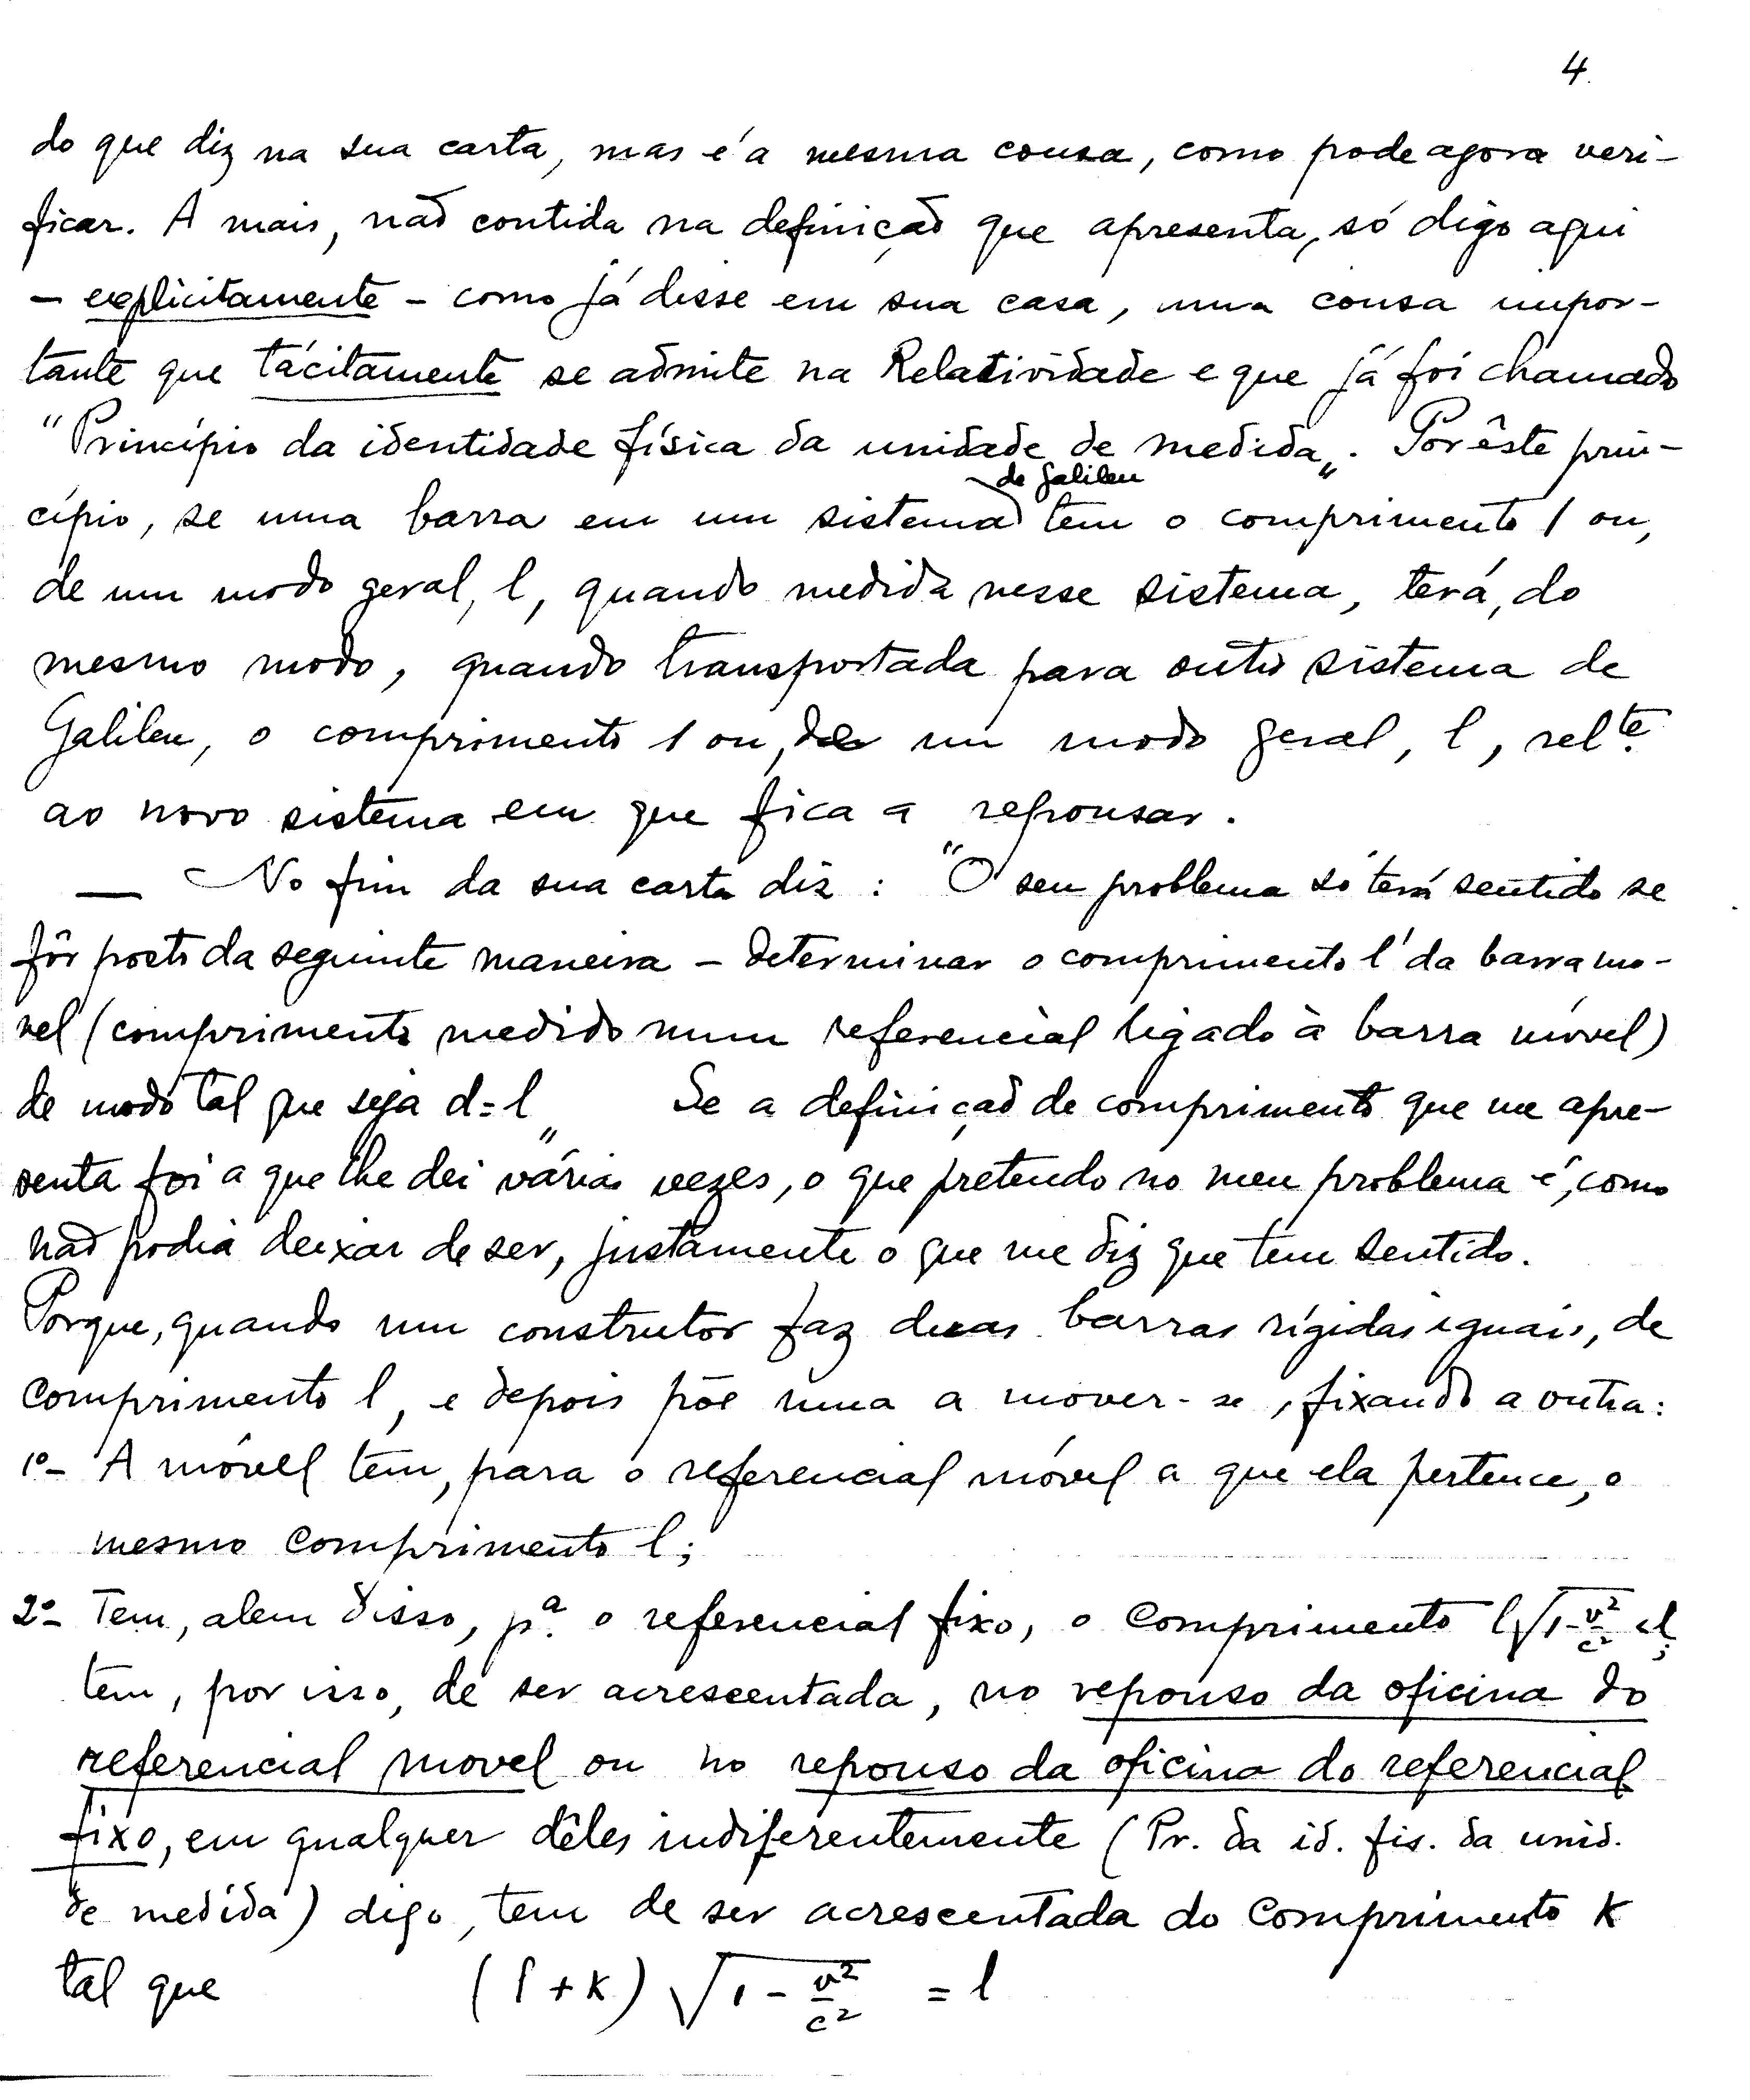 4.
do que diz na sua carta, mas é a mesma cousa, como pode agora veri-
ficar. A mais, não contida na definição que apresenta, só digo aqui
- explicitamente - como já disse em sua casa, uma cousa impor-
tante que tácitamente se admite na Relatividade e que já foi chamado
"Princípio da identidade física da unidade de medida„. Por êste prin-
de Galileu
cípio, se uma barra em um sistema tem o comprimento 1 ou,
de um modo geral, l, quando medida nesse sistema, terá, do
mesmo modo, quando transportada para outro sistema de
Galileu, o comprimento 1 ou, de um modo geral, l, relte.
ao novo sistema em que fica a repousar.
— No fim da sua carta diz : "O seu problema só tem sentido se
fôr posto da seguinte maneira - determinar o comprimento l' da barra mo-
vel (comprimento medido num referencial ligado à barra móvel)
de modo tal que seja d = l„ Se a definição de comprimento que me apre-
senta foi a que lhe dei várias vezes, o que pretendo no meu problema é, como
não podia deixar de ser, justamente o que me diz que tem sentido.
Porque, quando um construtor faz duas barras rígidas iguais, de
comprimento l, e depois põe uma a mover-se, fixando a outra:
1º- A móvel tem, para o referencial móvel a que ela pertence, o
mesmo comprimento l;
2º- Tem, alem disso, pª. o referencial fixo, o comprimento l√1-v²/c² <l;
tem, por isso, de ser acrescentada, no repouso da oficina do
referencial movel ou no repouso da oficina do referencial
fixo, em qualquer dêles indiferentemente (Pr. da id. fis. da unid.
de medida) digo, tem de ser acrescentada do comprimento K
tal que (l + K) √1 - v²/c² = l